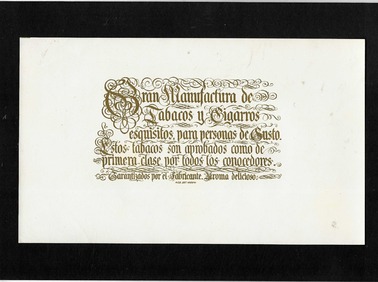 Gran Manufactura de
Tabacos y Cigarros
esquisitos, para personas de Gusto.
Estos tabacos son aprobados como de
primera clase por todos los conocedores.
Garantizados por el Fabricante. Aroma delicioso.